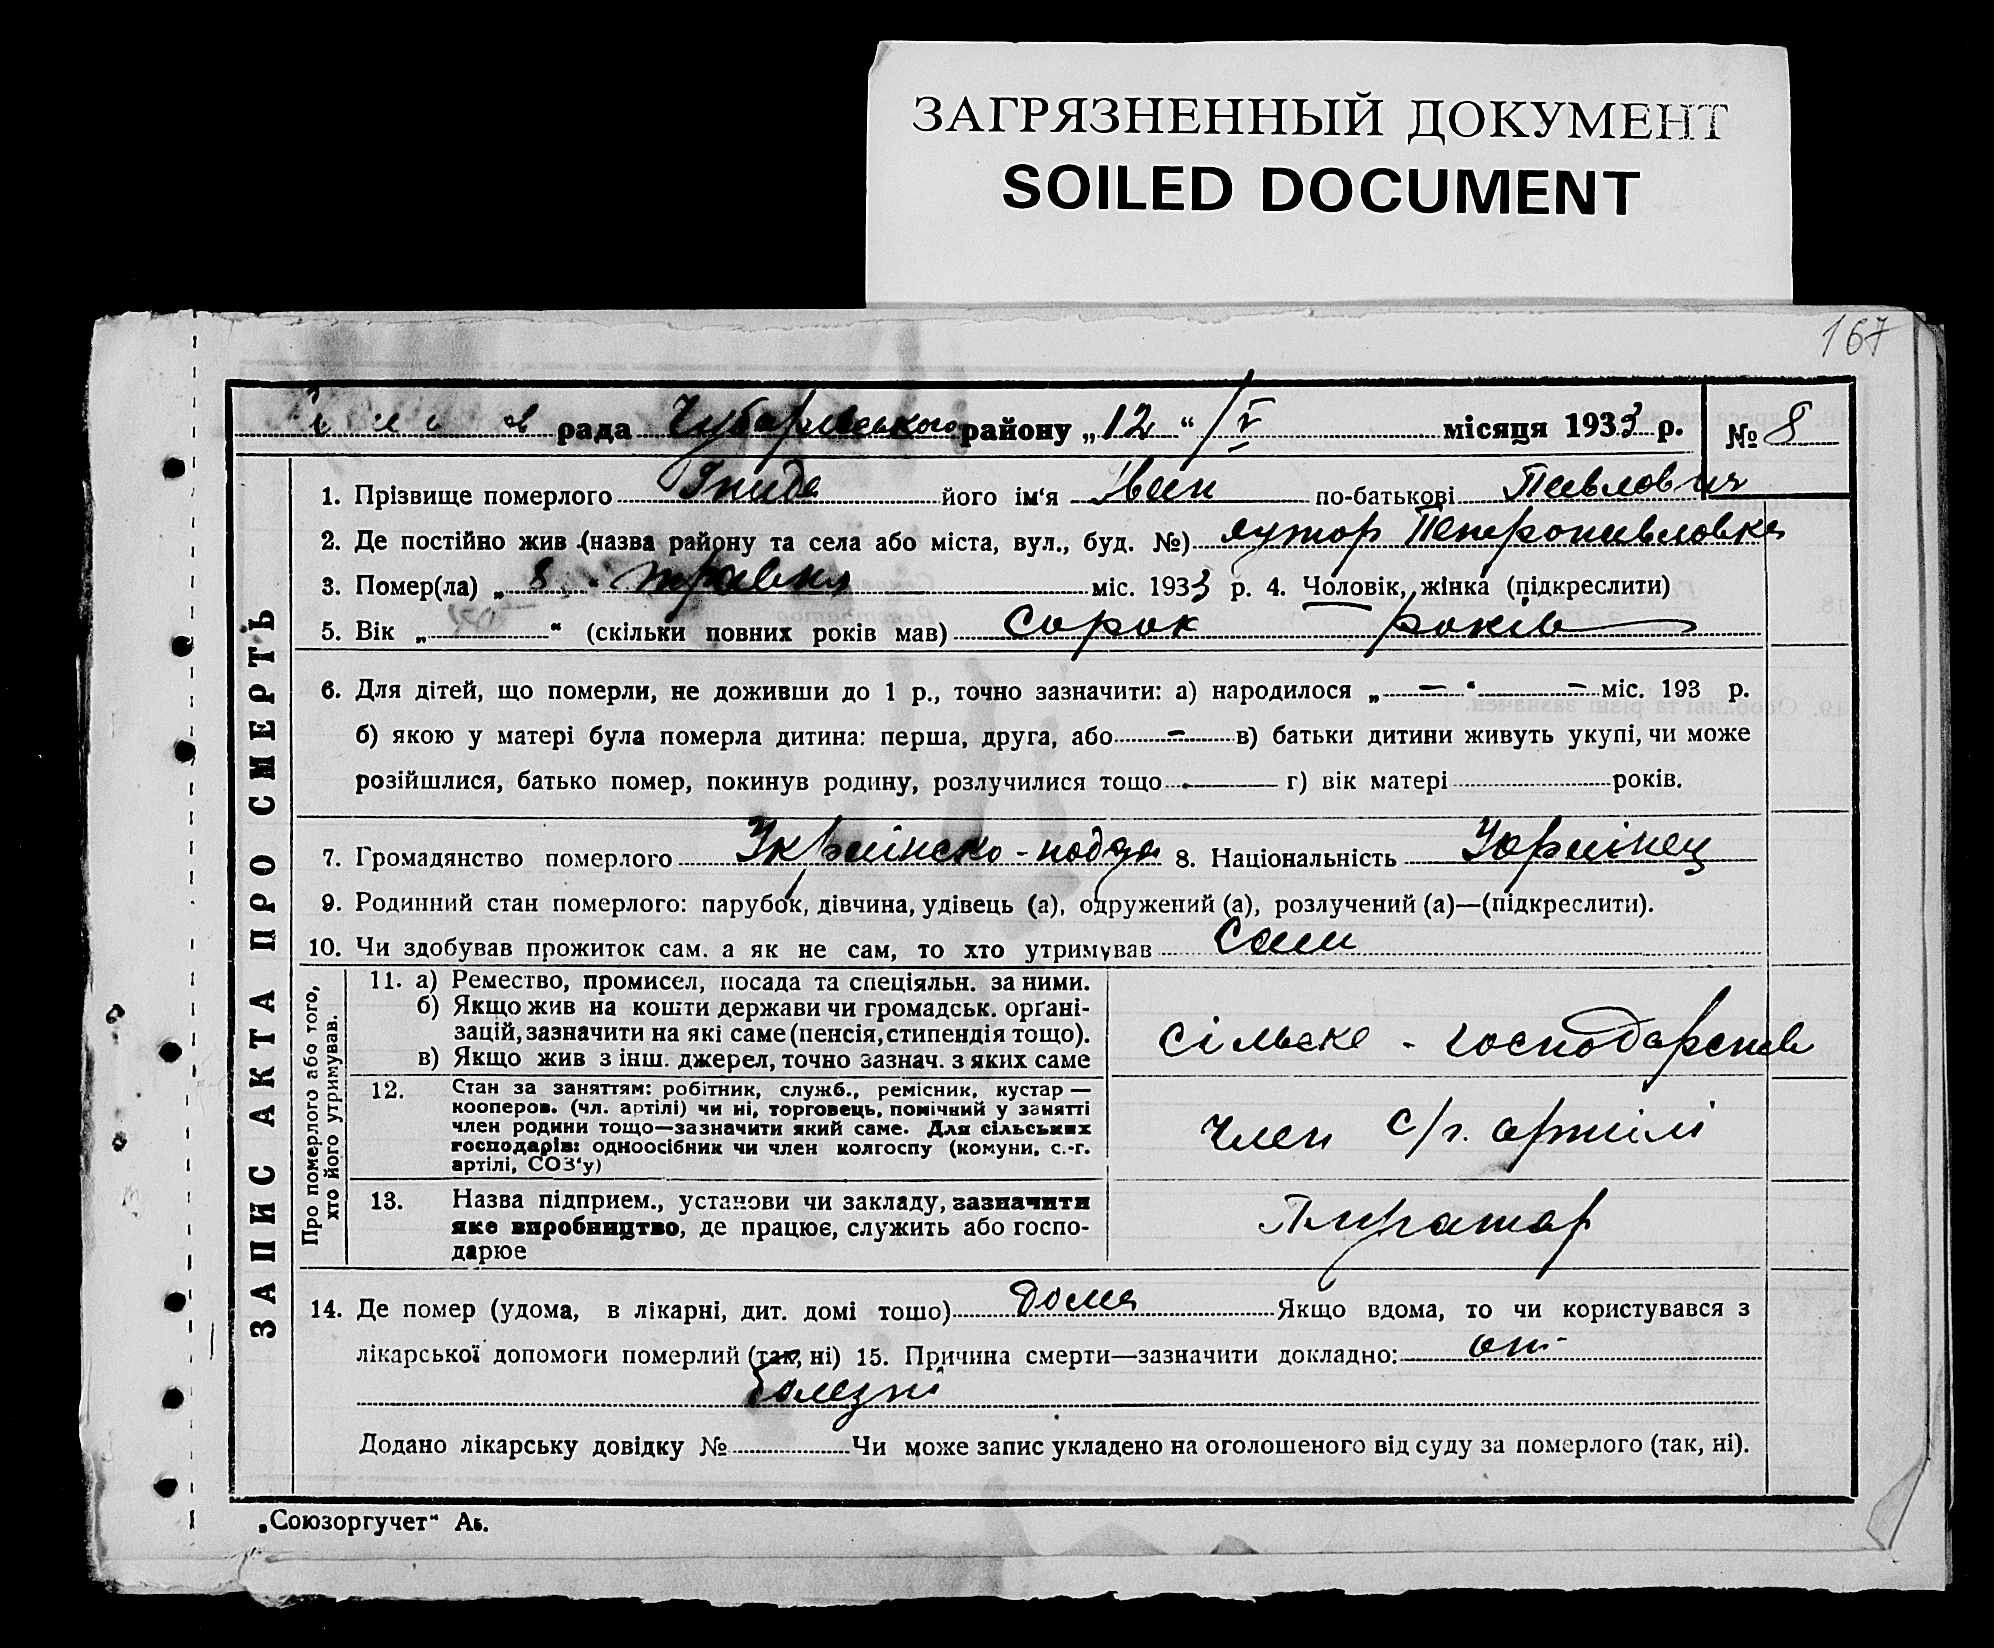 ЗАГРЯЗНЕННЫЙ ДОКУМЕНТ
SOILED DOCUMENT
167
рада Чубарівського району „12“ /V місяця 1933 р. № 8
ЗАПИС АКТА ПРО СМЕРТЬ
1. Прізвище померлого Гнида його ім‘я Іван по-батькові Павлович
2. Де постійно жив (назва району та села або міста, вул., буд. №) хутор Петропавловка
3. Помер(ла) „8“ травня міс. 1933 р. 4. Чоловік, жінка (підкреслити)
5. Вік „ “ (скільки повних років мав) Сорок років
6. Для дітей, що померли, не доживши до 1 р., точно зазначити: а) народилося „ — “ — міс. 193 р.
б) якою у матері була померла дитина: перша, друга, або — в) батьки дитини живуть укупі, чи може
розійшлися, батько помер, покинув родину, розлучилися тощо — г) вік матері років.
7. Громадянство померлого 8. Національність Українец
9. Родинний стан померлого: парубок, дівчина, удівець (а), одружений (а), розлучений (а)—(підкреслити).
10. Чи здобував прожиток сам. а як не сам, то хто утримував Сам
Про померлого або того,
хто його утримував.
11. а) Ремество, промисел, посада та спеціяльн. за ними.
б) Якщо жив на кошти держави чи громадськ. орґані-
зацій, зазначити на які саме (пенсія, стипендія тощо).
в) Якщо жив з інш. джерел, точно зазнач. з яких саме
сільске - господарство
12. Стан за заняттям: робітник, служб., ремісник, кустар —
кооперов. (чл. артілі) чи ні, торговець, помічний у занятті
член родини тощо—зазначити який саме. Для сільських
господарів: одноосібник чи член колгоспу (комуни, с.-г.
артілі, СОЗ‘у)
член с/г. артілі
13. Назва підприєм., установи чи закладу, зазначити
яке виробництво, де працює, служить або госпо-
дарює
14. Де помер (удома, в лікарні, дит. домі тощо) дома Якщо вдома, то чи користувався з
лікарської допомоги померлий (так, ні) 15. Причина смерти—зазначити докладно: от
болезні
Додано лікарську довідку № Чи може запис укладено на оголошеного від суду за померлого (так, ні).
„Союзоргучет“ Аб.